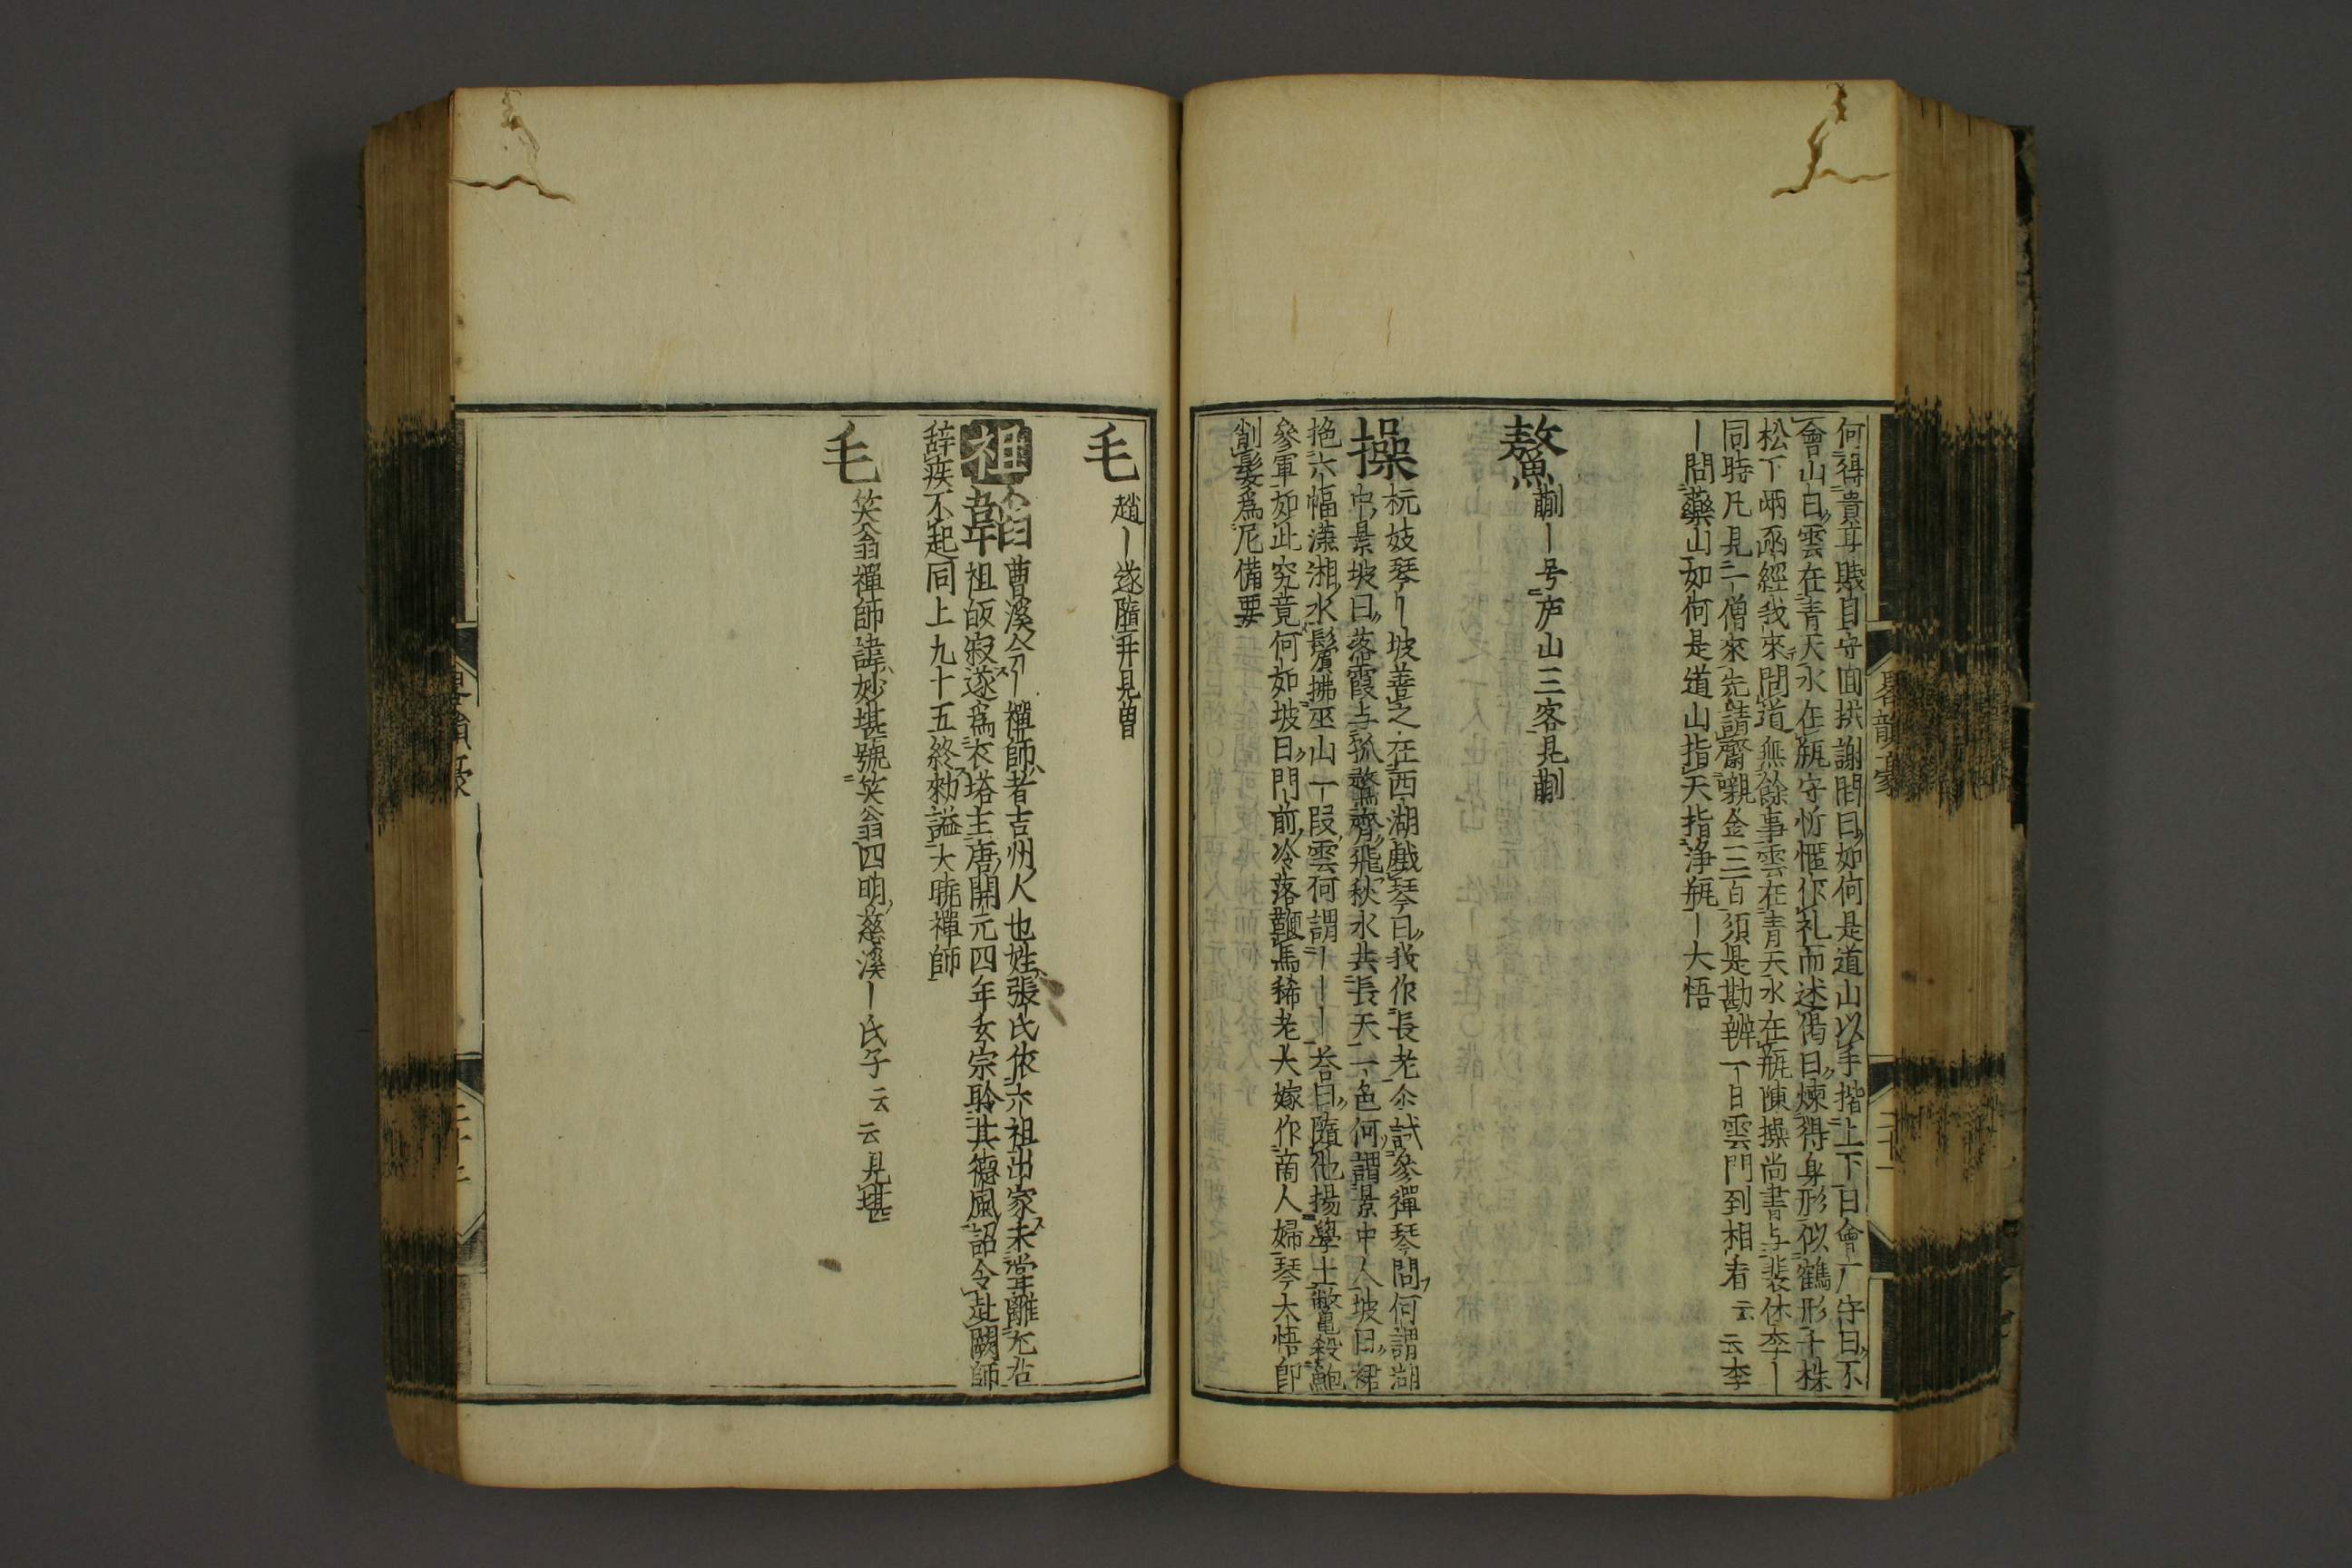 何得貴耳賤目守囬拱謝問曰如何是道山以手揩上下曰會广守曰不
會山曰雲在青天水在瓶守忻愜作礼而述偈曰煉得身形似鶴形千株
松下兩函經我來問道無餘事雲在青天水在瓶陳操尚書与裴休李ー
同時凡見一僧來先請齋襯金三百須是勘辨一日雲門到相看云云李
ー問藥山如何是道山指天指浄瓶ー大悟
鰲 蒯ー号庐山三客見蒯
操 杭妓琴ー坡善之在西湖戲琴曰我作長老仐試參禪琴問何謂湖
中景坡曰落霞与孤鶩齊飛秋水共長天一色何謂景中人坡曰裙
拖六幅瀟湘水鬢拂巫山一段雲何謂ーーー荅曰隨他揚學士鱉殺鮑
參軍如此究竟何如坡曰門前冷落鞍馬稀老大嫁作商人婦琴大悟即
削髮爲尼備要
畧韻豪
二十一
毛 趙ー遂隨井見曽
祖韜 曹溪令ー禪師者吉州人也姓張氏依六祖出家未甞離左右
祖皈寂遂爲衣塔主唐開元四年玄宗聆其德風詔令赴闕師
辞疾不起同上九十五終勑謚大曉禪師
毛 笑翁禪師諱妙堪號笑翁四明慈溪ー氏子云云見堪